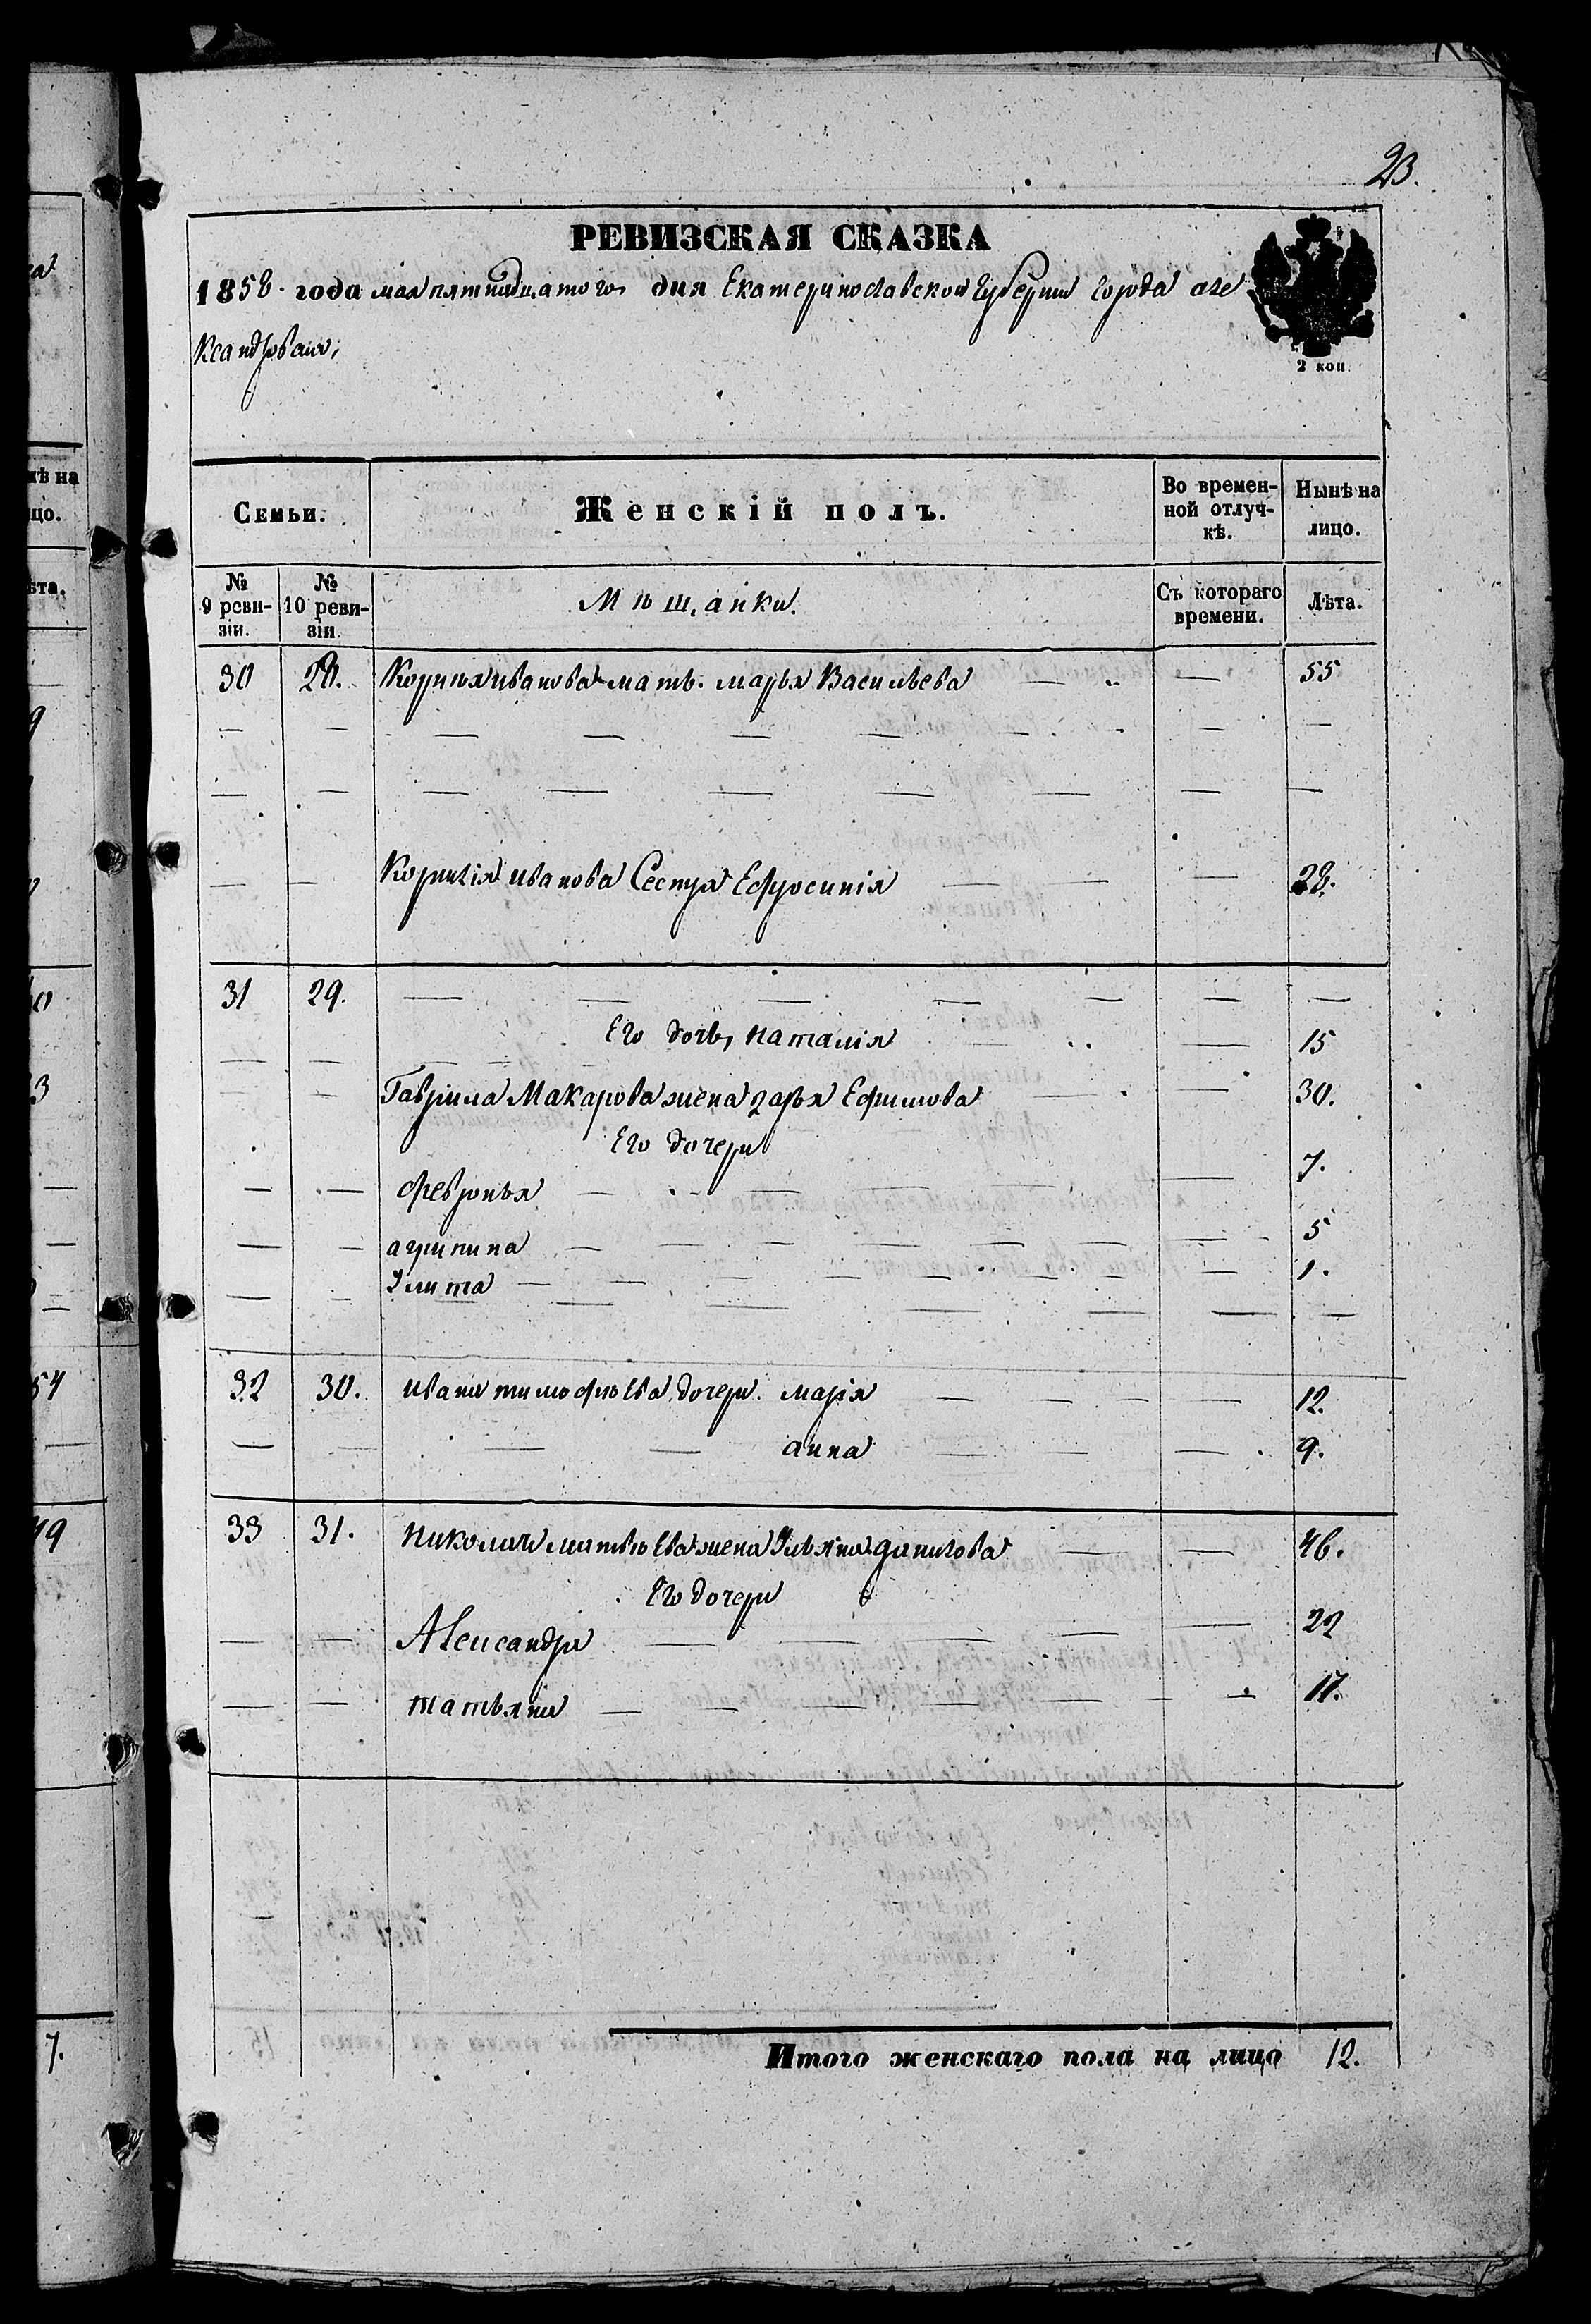 23.
РЕВИЗСКАЯ СКАЗКА
1858. года мая пятнадцатого дня Екатеринославской Губернии города але
ксандровска,
2 коп.
Семьи.
Женскій полъ.
Во времен-
ной отлуч-
кѣ.
Нынѣ на
лицо.
№
9 реви-
зіи.
№
10 реви-
зіи.
Мѣщанки.
Съ котораго
времени.
Лѣта.
30 28. Корнѣя иванова мать. марья Васильева — — 55
Корнѣія иванова Сестра Ефросинія — — 28.
31 29. — — — — — — —
Его дочь, наталія — — 15
Гаврила Макарова жена дарья Ефимова — — 30.
Его дочери
февронья — — 7.
агрипина — — 5
Улита — — 1.
32 30. ивана тимофѣева, дочери. марія — — 12.
— — анна — — 9.
33 31. николая матвѣева жена Ульяна данилова — — 46.
Его дочери
Александра — — 22
татьяна — — 17.
Итого женскаго пола на лицо 12.
ѣ на
цо.
ѣта.
9
3
54
49
7.